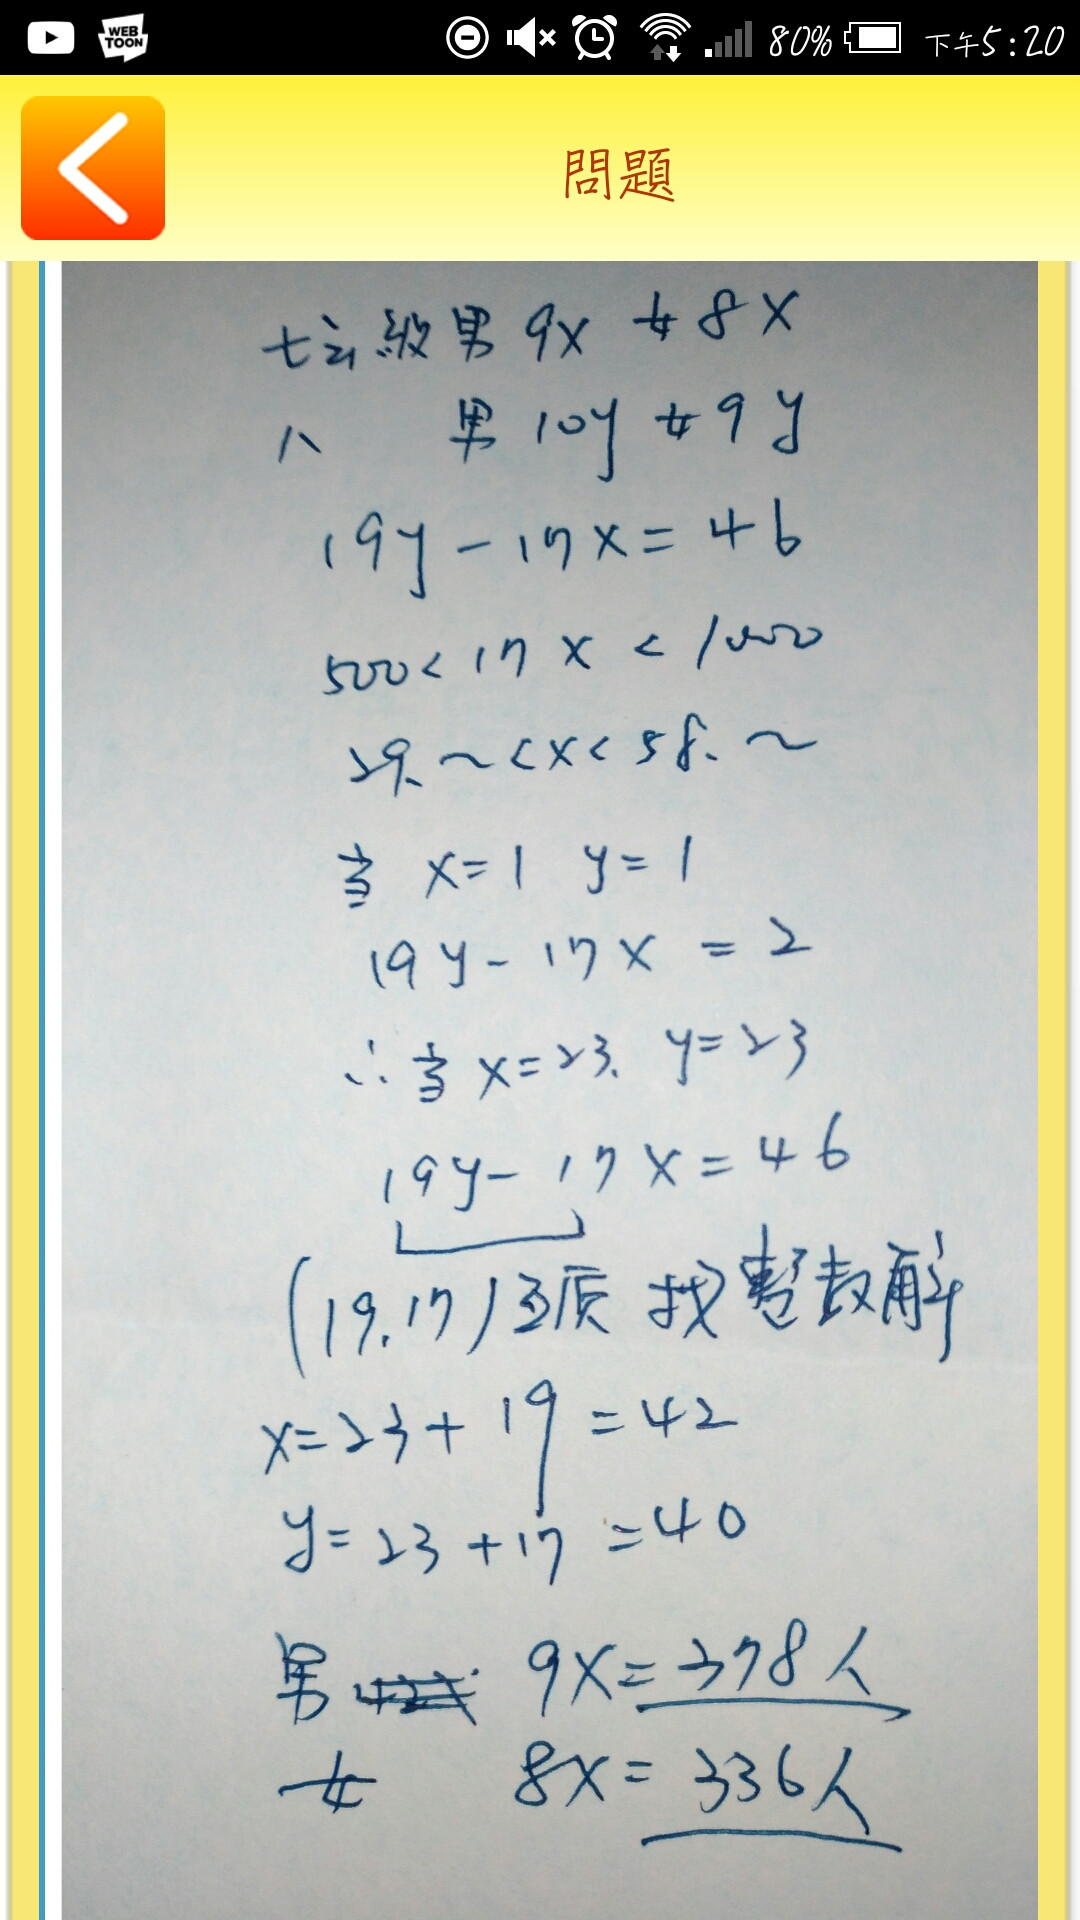 WEB
TOON
80%
下午5:20
問題
七年級男 9x 女 8x
八 男 10y 女 9y
19y-17x=46
500<17x<1000
29.~<x<58.~
當 x=1 y=1
19y-17x=2
∴當 x=23. y=23
19y-17x=46
(19.17)互質 找整數解
x=23+19=42
y=23+17=40
男 9x=378人
女 8x=336人